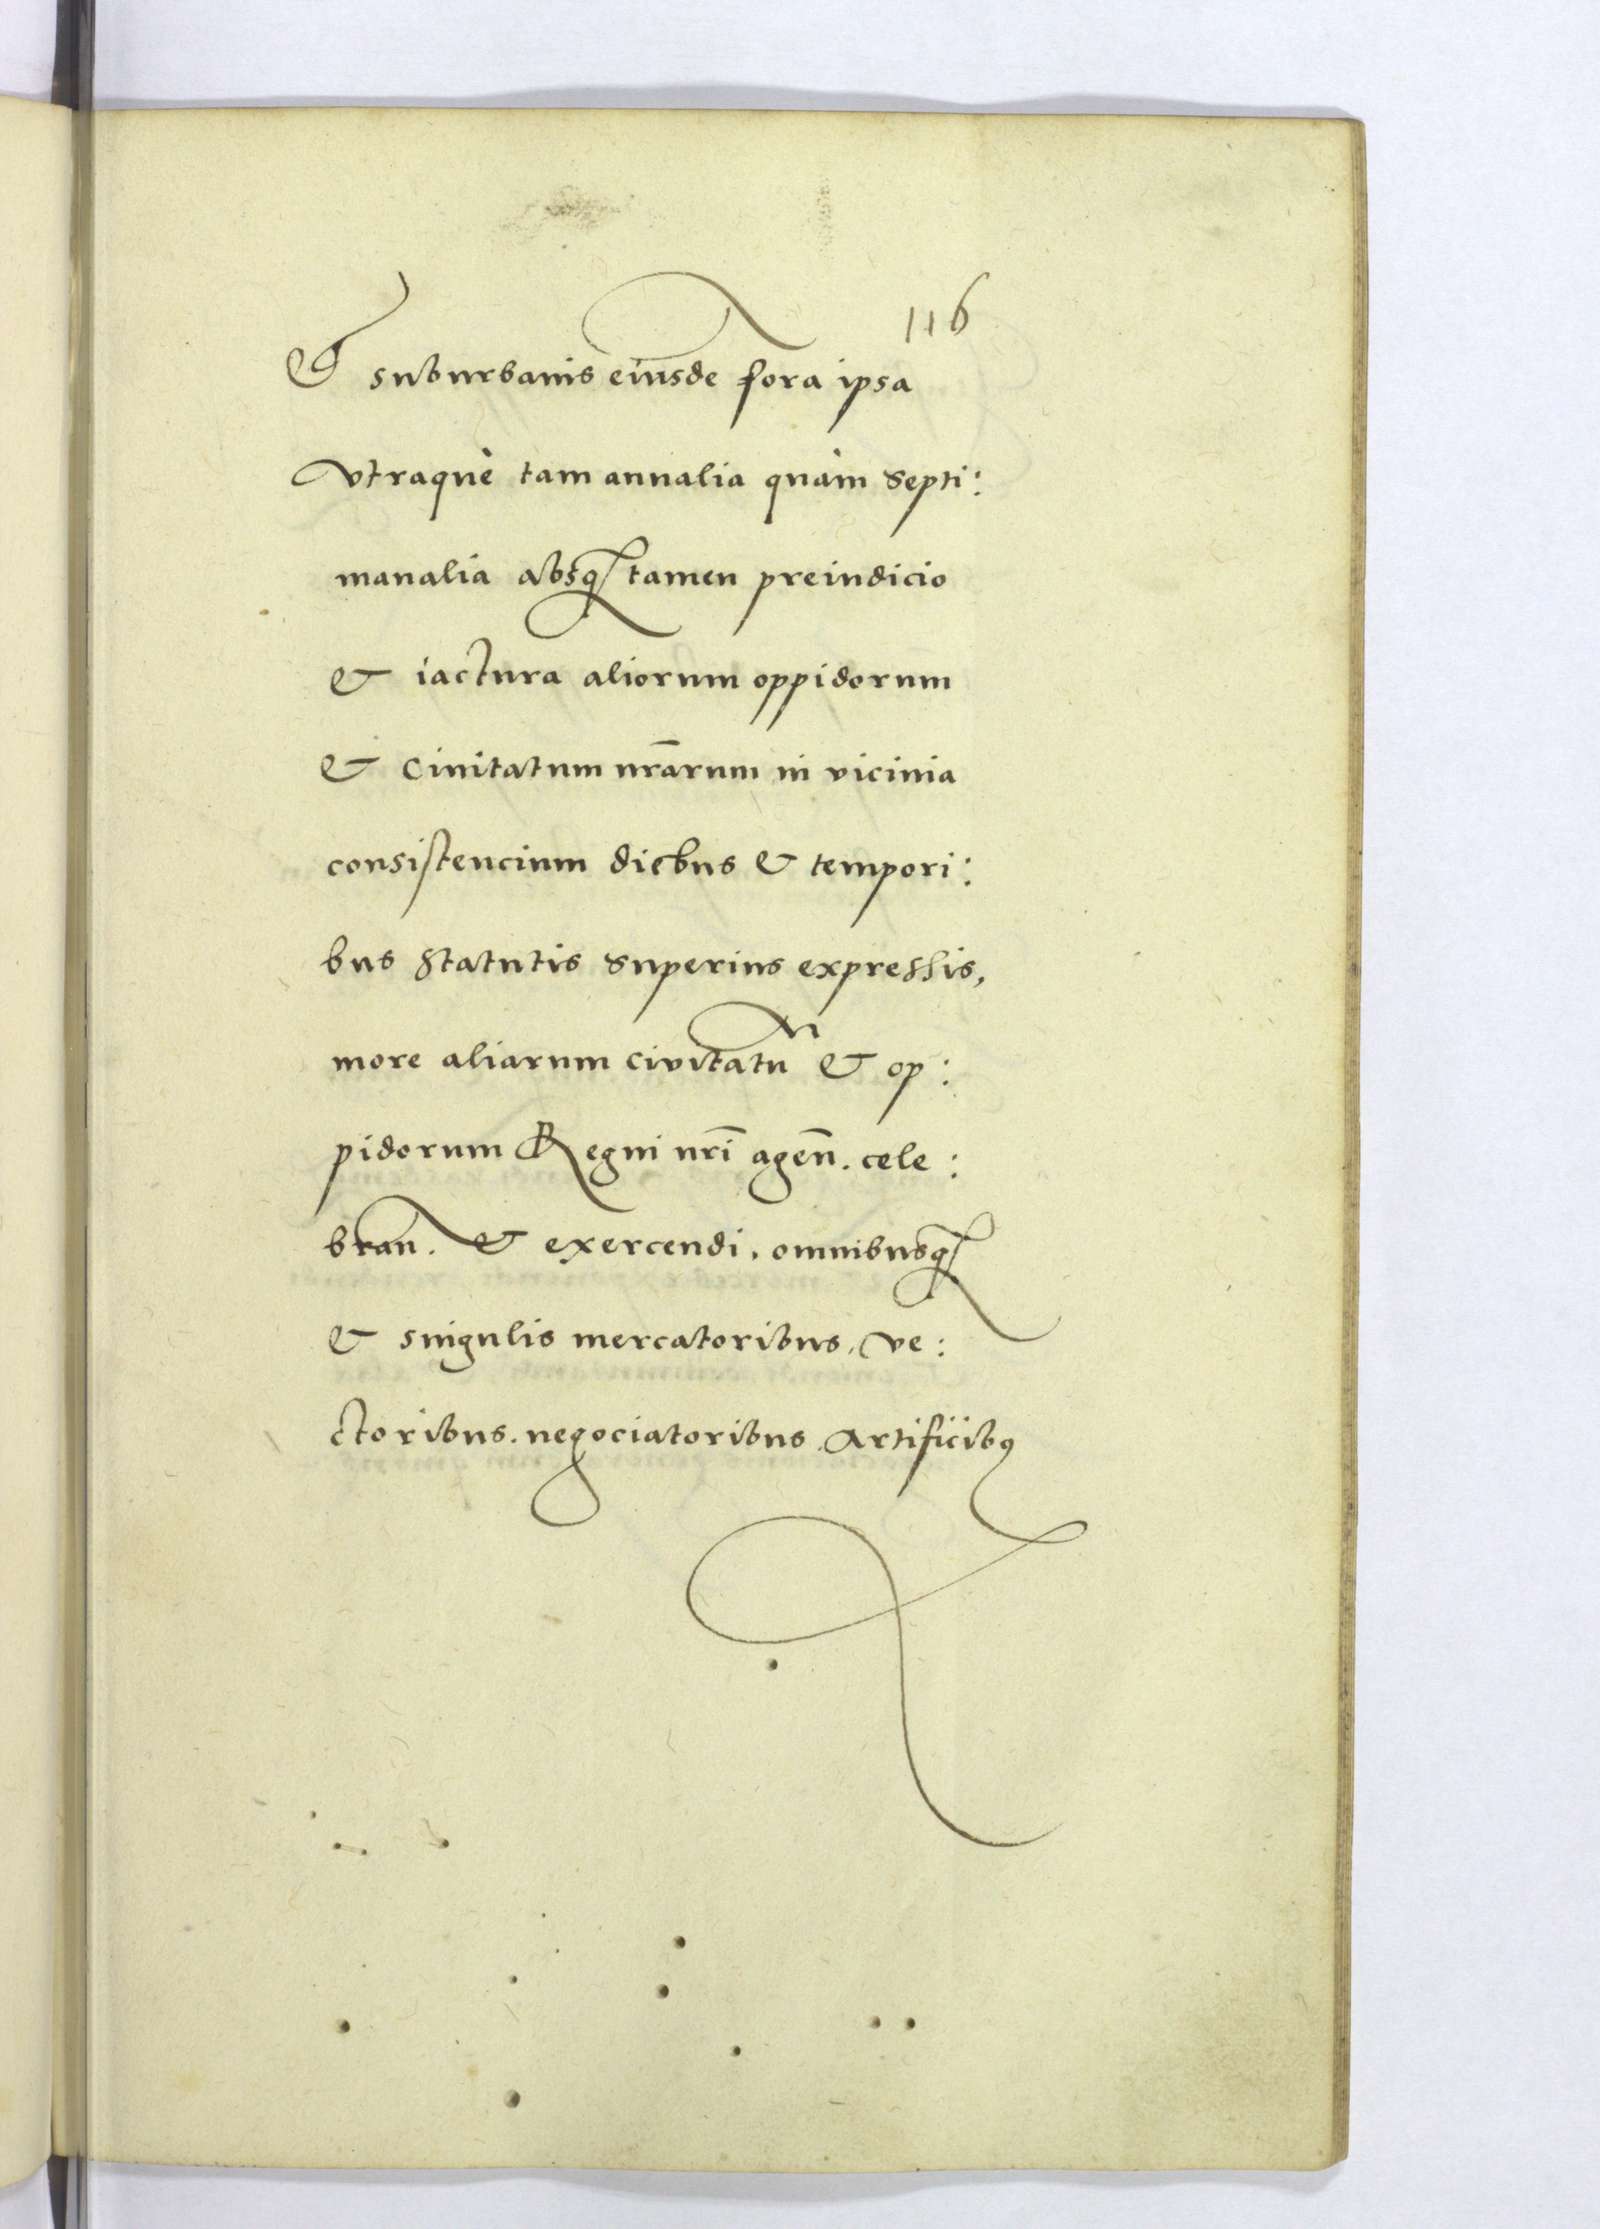 116
& suburbanis eiusdē fora ipsa
Vtraquè tam annalia quàm septi:
manalia absq₃ tamen preiudicio
& iactura aliorum oppidorum
& Ciuitatum nr̄arum in vicinia
consistencium diebus & tempori:
bus statutis superius expressis,
more aliarum civitatū & op:
pidorum Regni nr̄i agen̄. cele:
bran̄. & exercendi, omnibusq₃
& singulis mercatoribus, ve:
ctoribus. negociatoribus. Artificibꝰ